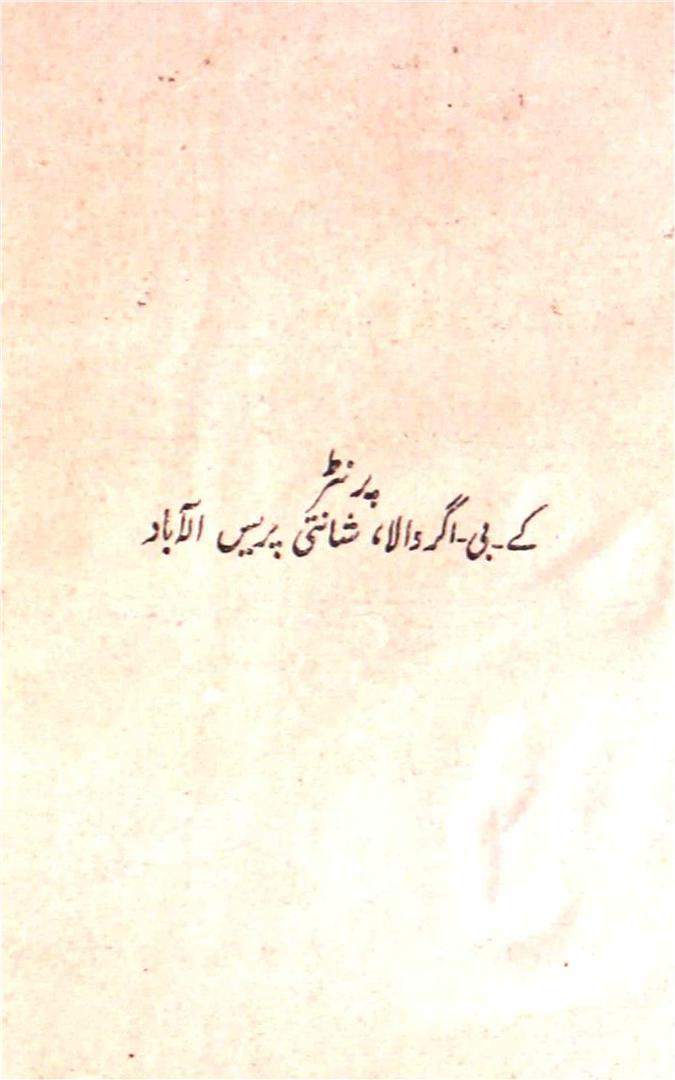 پرنٹر
کے۔ بی۔ اگروالا، شانتی پریس الہٰ آباد